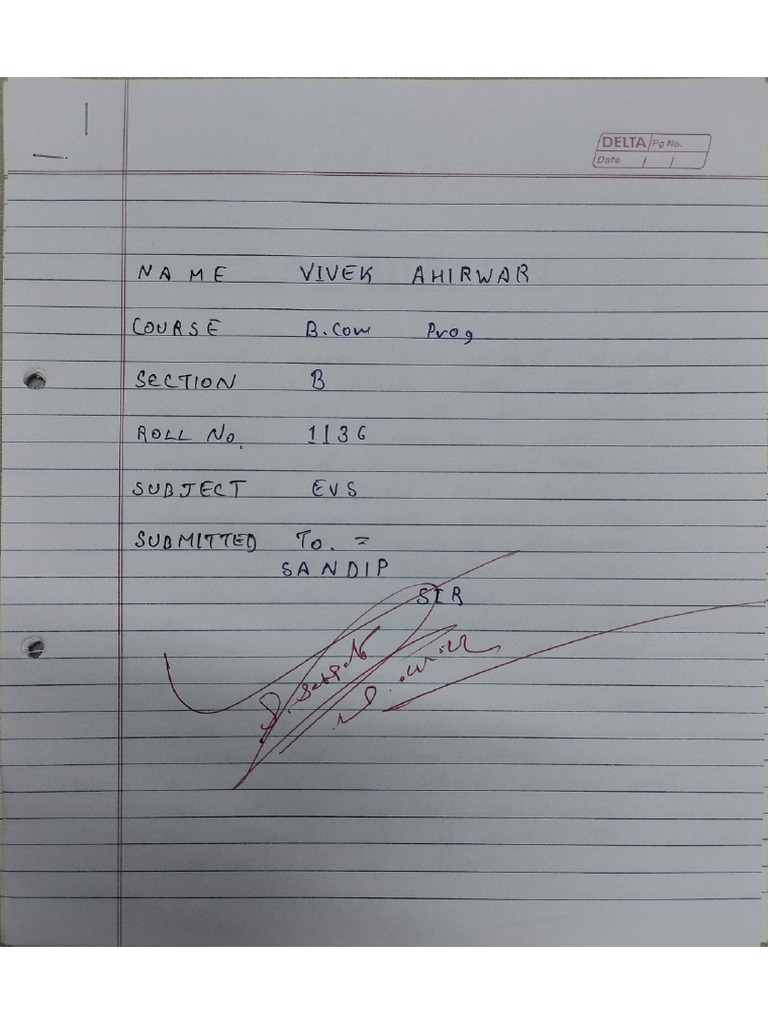 DELTA Pg No.
Date / /
NAME VIVEK AHIRWAR
COURSE B.Com Prog
SECTION B
ROLL No. 1136
SUBJECT EVS
SUBMITTED To. =
SANDIP
SIR